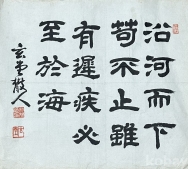 沿河而下
苟不止雖
有遲疾必
至於海
玄堂散人